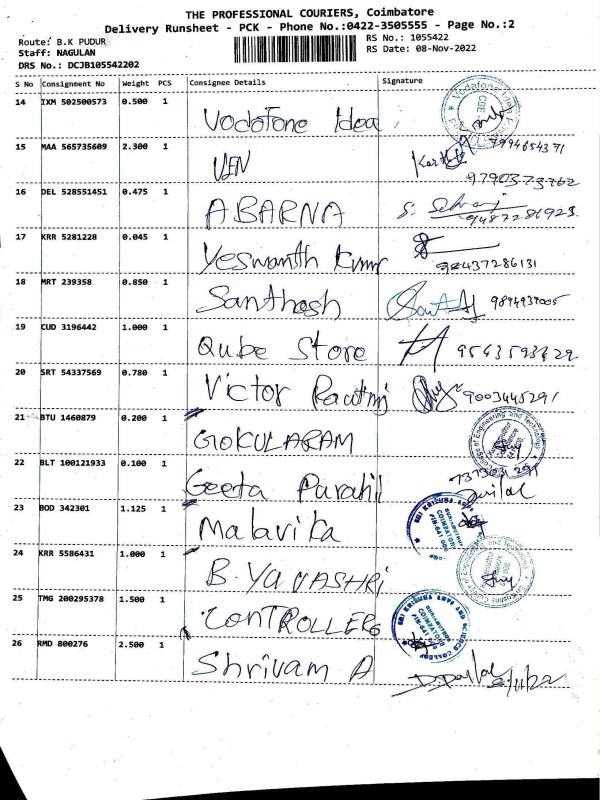 THE PROFESSIONAL COURIERS, Coimbatore
Delivery Runsheet - PCK - Phone No.:0422-3505555 - Page No.:2
Route: B.K PUDUR
Staff: NAGULAN
DRS No.: DCJB105542202
RS No.: 1055422
RS Date: 08-Nov-2022
S No Consignment No Weight PCS Consignee Details Signature
14 IXM 502500573 0.500 1 Vodafone Idea
15 MAA 565735609 2.300 1 7994654371
9790373762
16 DEL 528551451 0.475 1 ABARNA S. Selvaraj
9487286923
17 KRR 5281228 0.045 1 Yeswanth Kumar
98437286131
18 MRT 239358 0.850 1 Santhosh
19 CUD 3196442 1.000 1 Qube Store
20 SRT 54337569 0.780 1 Victor 9003445291
21 BTU 1460879 0.200 1 GOKULARAM
22 BLT 100121933 0.100 1 Geeta
23 BOD 342301 1.125 1 Malavika
24 KRR 5586431 1.000 1 B.
25 TMG 200295378 1.500 1 CONTROLLER
26 RMD 800276 2.500 1 Shrivam A